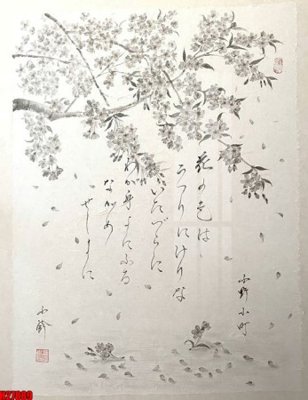 小野小町
花の色は
うつりにけりな
いたづらに
わが身よにふる
ながめ
せしまに